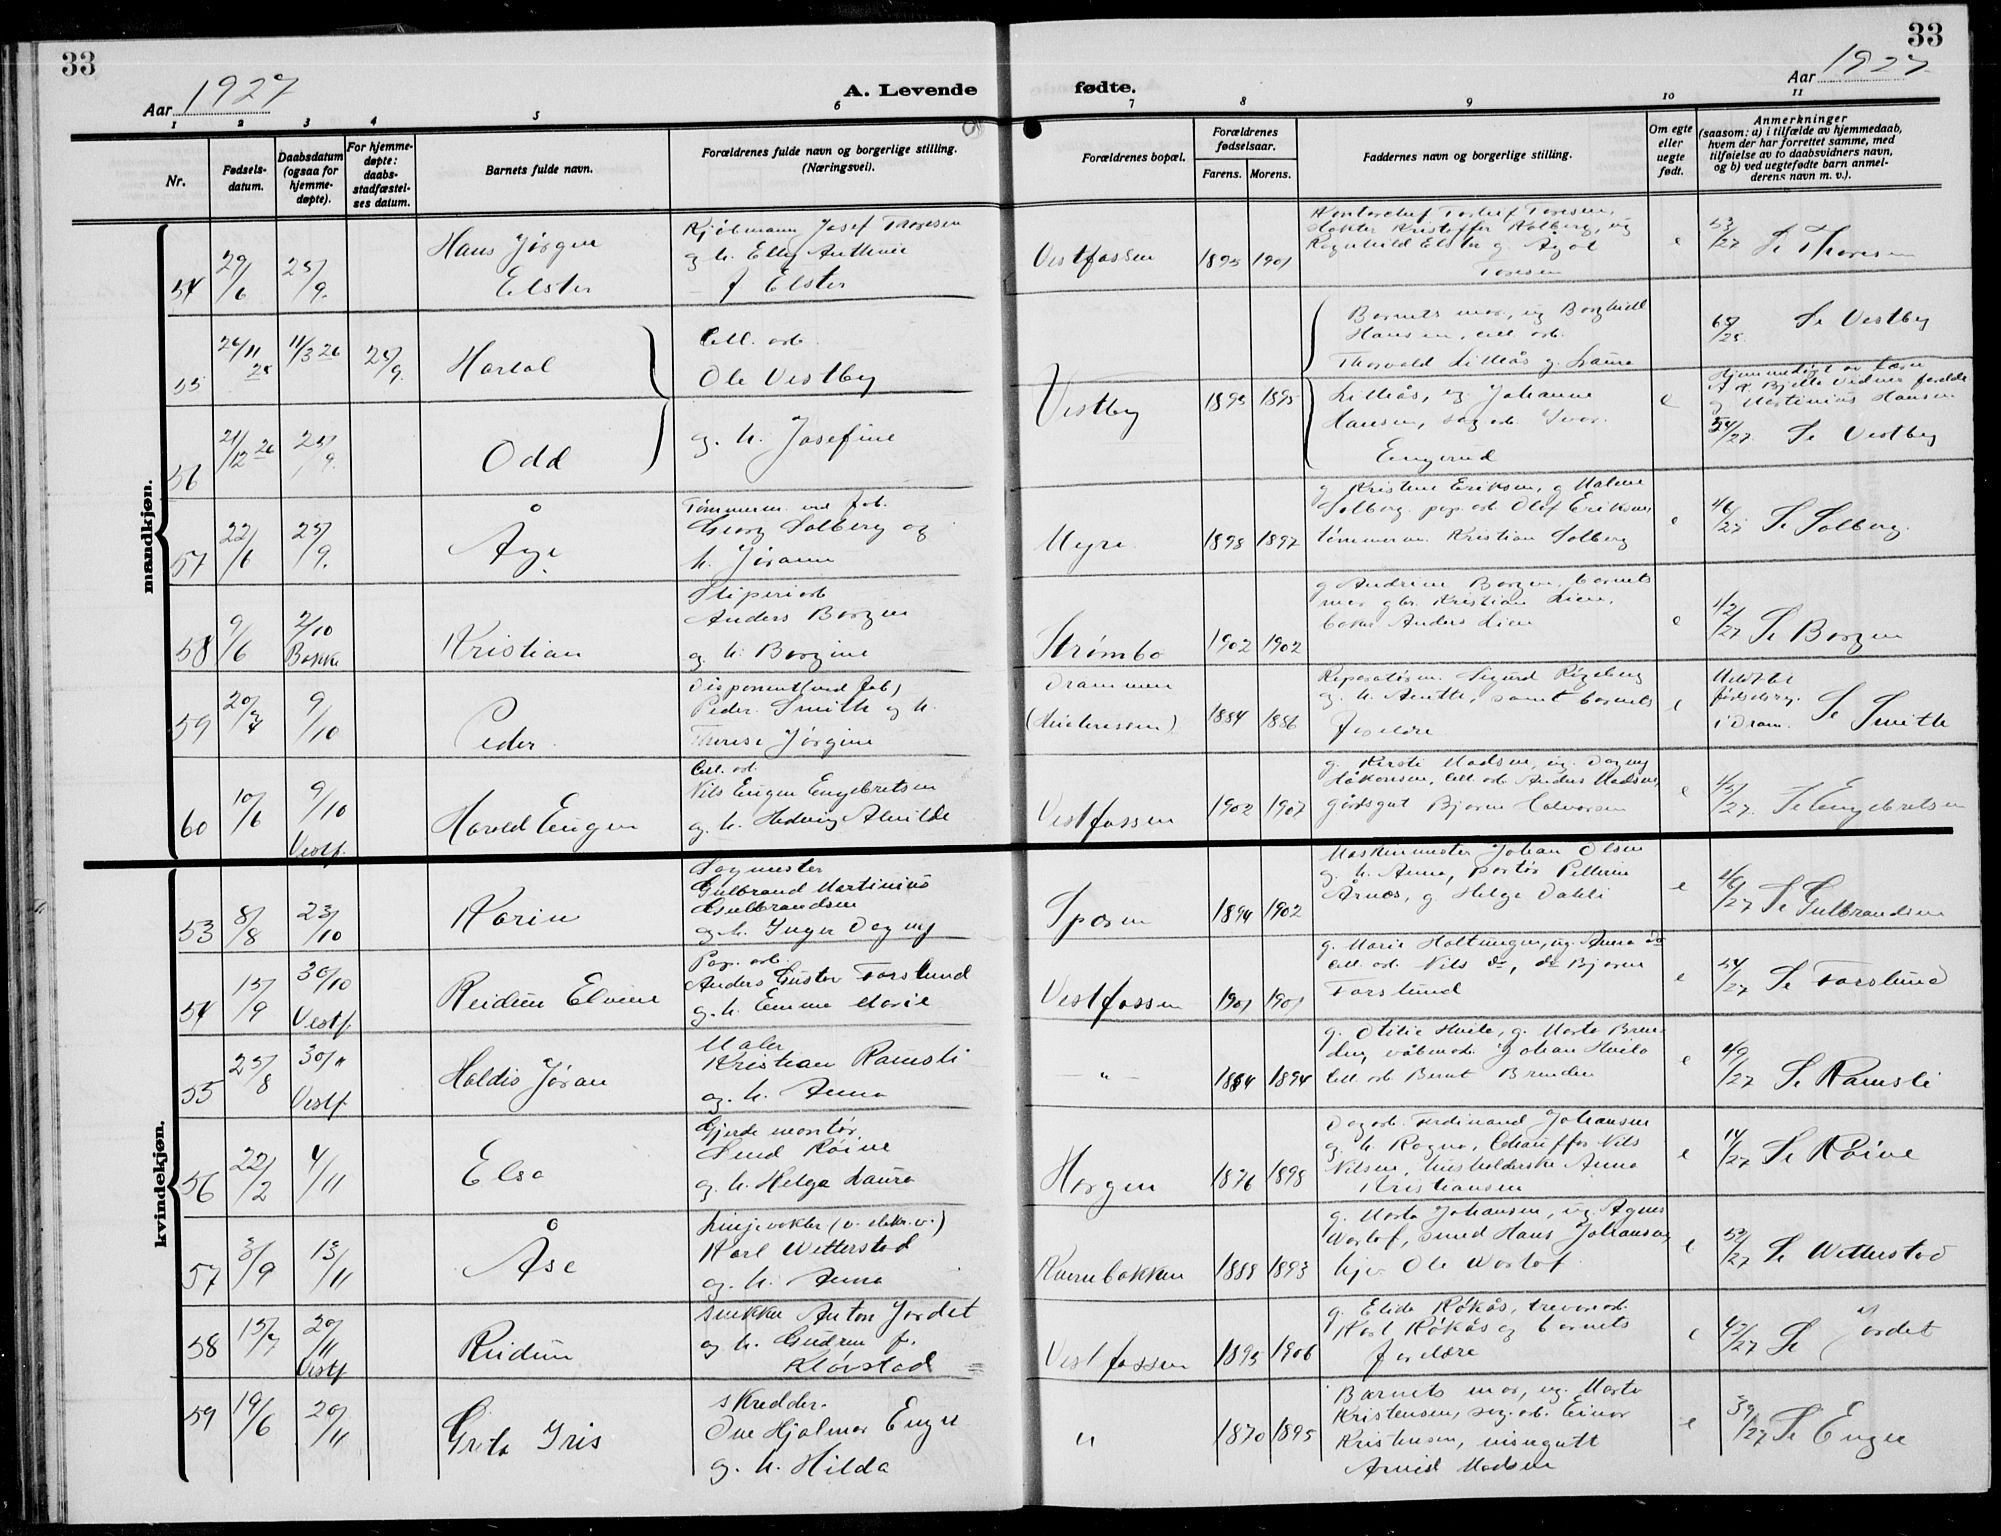 33
33
Aar 1927
A. Levende
fødte.
Aar 1927
1 2 3 4 5 6 7 8 9 10 11
Nr.
Fødsels-
datum.
Daabsdatum
(ogsaa for
hjemme-
døpte).
For hjemme-
døpte:
daabs-
stadfæstel-
ses datum.
Barnets fulde navn.
Forældrenes fulde navn og borgerlige stilling.
(Næringsvei).
Forældrenes bopæl.
Forældrenes
fødselsaar.
Farens. Morens.
Faddernes navn og borgerlige stilling.
Om egte
eller
uegte
født.
Anmerkninger
(saasom: a) i tilfælde av hjemmedaab,
hvem der har forrettet samme, med
tilføielse av to daabsvidners navn,
og b) ved uegtefødte barn anmel-
derens navn m. v.).
mandkjøn.
54 29/6 25/9
Hans Jørgen
Elster
Kjøbmann Josef Thoresen
og h. Elly
f Elster
Vestfossen 1895 1901
Kristoffer
Toresen
e
53/27 Se Thoresen
55 26/11 25 11/3 26 25/9
Harlal
Cell. arb.
Ole Vestby
Vestby 1895 1895
Barnets mor, ug Borghild
Hansen, cell. arb.
Thorvald Lilleås g. Laura
Lilleås, ug Johanne
Hansen, sag arb. Ivar
Engerud
e
65/25 Se Vestby
og Martinius Hansen
54/27 Se Vestby
56 21/12 26 25/9
Odd
og h. Josefine
57 22/6 25/9
Åge
Tømmerm. ved fab.
Georg Solberg og
h. Jørann
Myre 1898 1897
g Kristine Eriksen, g Malene
Solberg pap. arb Olof Eriksen
tømmerm. Kristian Solberg
e
46/27 Se Solberg.
58 9/6 2/10
Bakke
Kristian
Sliperiarb
Anders Borgen
og h. Borgine
Strømbo 1902 1902
g Andrine Borgen, barnets
mor gbr. Kristian Lien,
Anders Lien
e
42/27 Se Borgen
59 20/4 9/10
Peder
Disponent (ved fab)
Peder Smith og h.
Therese Jørgine
Drammen
1884 1886
Sigurd
og h. samt barnets
foreldre
e
Meldt til
fødselsreg.
i Dram. Se Smith
60 10/6 9/10
Vestf.
Harald Eugen
Cell. arb.
Nils Eugen Engebretsen
og h. Hedvig Alvilde
Vestfossen 1902 1907
g. Kirsti Madsen, ug. Dagny
Håkonsen, cell. arb Anders Madsen,
gårdsgut Bjarne Halvorsen
e
45/27 Se Engebretsen
kvindekjøn.
53 8/8 23/10
Karin
Sagmester
Gulbrand Martinius
Gulbrandsen
og h. Inger Dagny
1894 1902
Maskinmester Johan Olsen
og h. Anna, Portør
Årnes, g Helga Dahli
e
46/27 Se Gulbrandsen
54 15/9 30/10
Vestf.
Reidun Elvine
Pap. arb.
Anders Gustav Forslund
og h. Emma Marie
Vestfossen 1901 1901
g. Marie Holtungen, ug. Anna do
cell arb Nils do, do Bjarne
Forslund
e
54/27 Se Forslund
55 25/8 30/"
Vestf.
Haldis Jøran
Maler
Kristian Ramsli
og h. Anna
— " — 1884 1894
g. Otilie Hvila, g. Marta Brun-
den, Johan Hvila
cell arb Bernt Brunden
e
49/27 Se Ramsli
56 22/2 4/11
Elsa
Gjerde montør
Røine
og h. Helga Laura
Horgen 1876 1898
Dagarb. Ferdinand Johansen
og h. Ragna, Chauffør Nils
Nilsen, husholderske Anna
Kristiansen
e
14/27 Se Røine
57 3/9 13/11
Åse
Linjevokter (v. elektr. v.)
Karl Wetterstad
og h. Anna
1888 1893
g. Marta Johansen, ug. Agnes
smed Hans Johansen,
Ole
e
52/27 Se Wetterstad
58 15/7 20/11
Vestf
Reidun
snekker Anton Jordet
og h. Gudrun f.
Kløvstad =
Vestfossen 1895 1906
g. Elida Røkås, trevarearb.
Karl Røkås og barnets
foreldre
e
47/27 Se Jordet
59 19/6 20/11
Greta Iris
skredder.
Ove Hjalmar Enger
og. h. Hilda
" 1870 1895
Barnets mor, ug. Marta
Kristensen, sag. arb. Einar
Kristensen, visergutt
Arvid Madsen
e
39/27 Se Enger